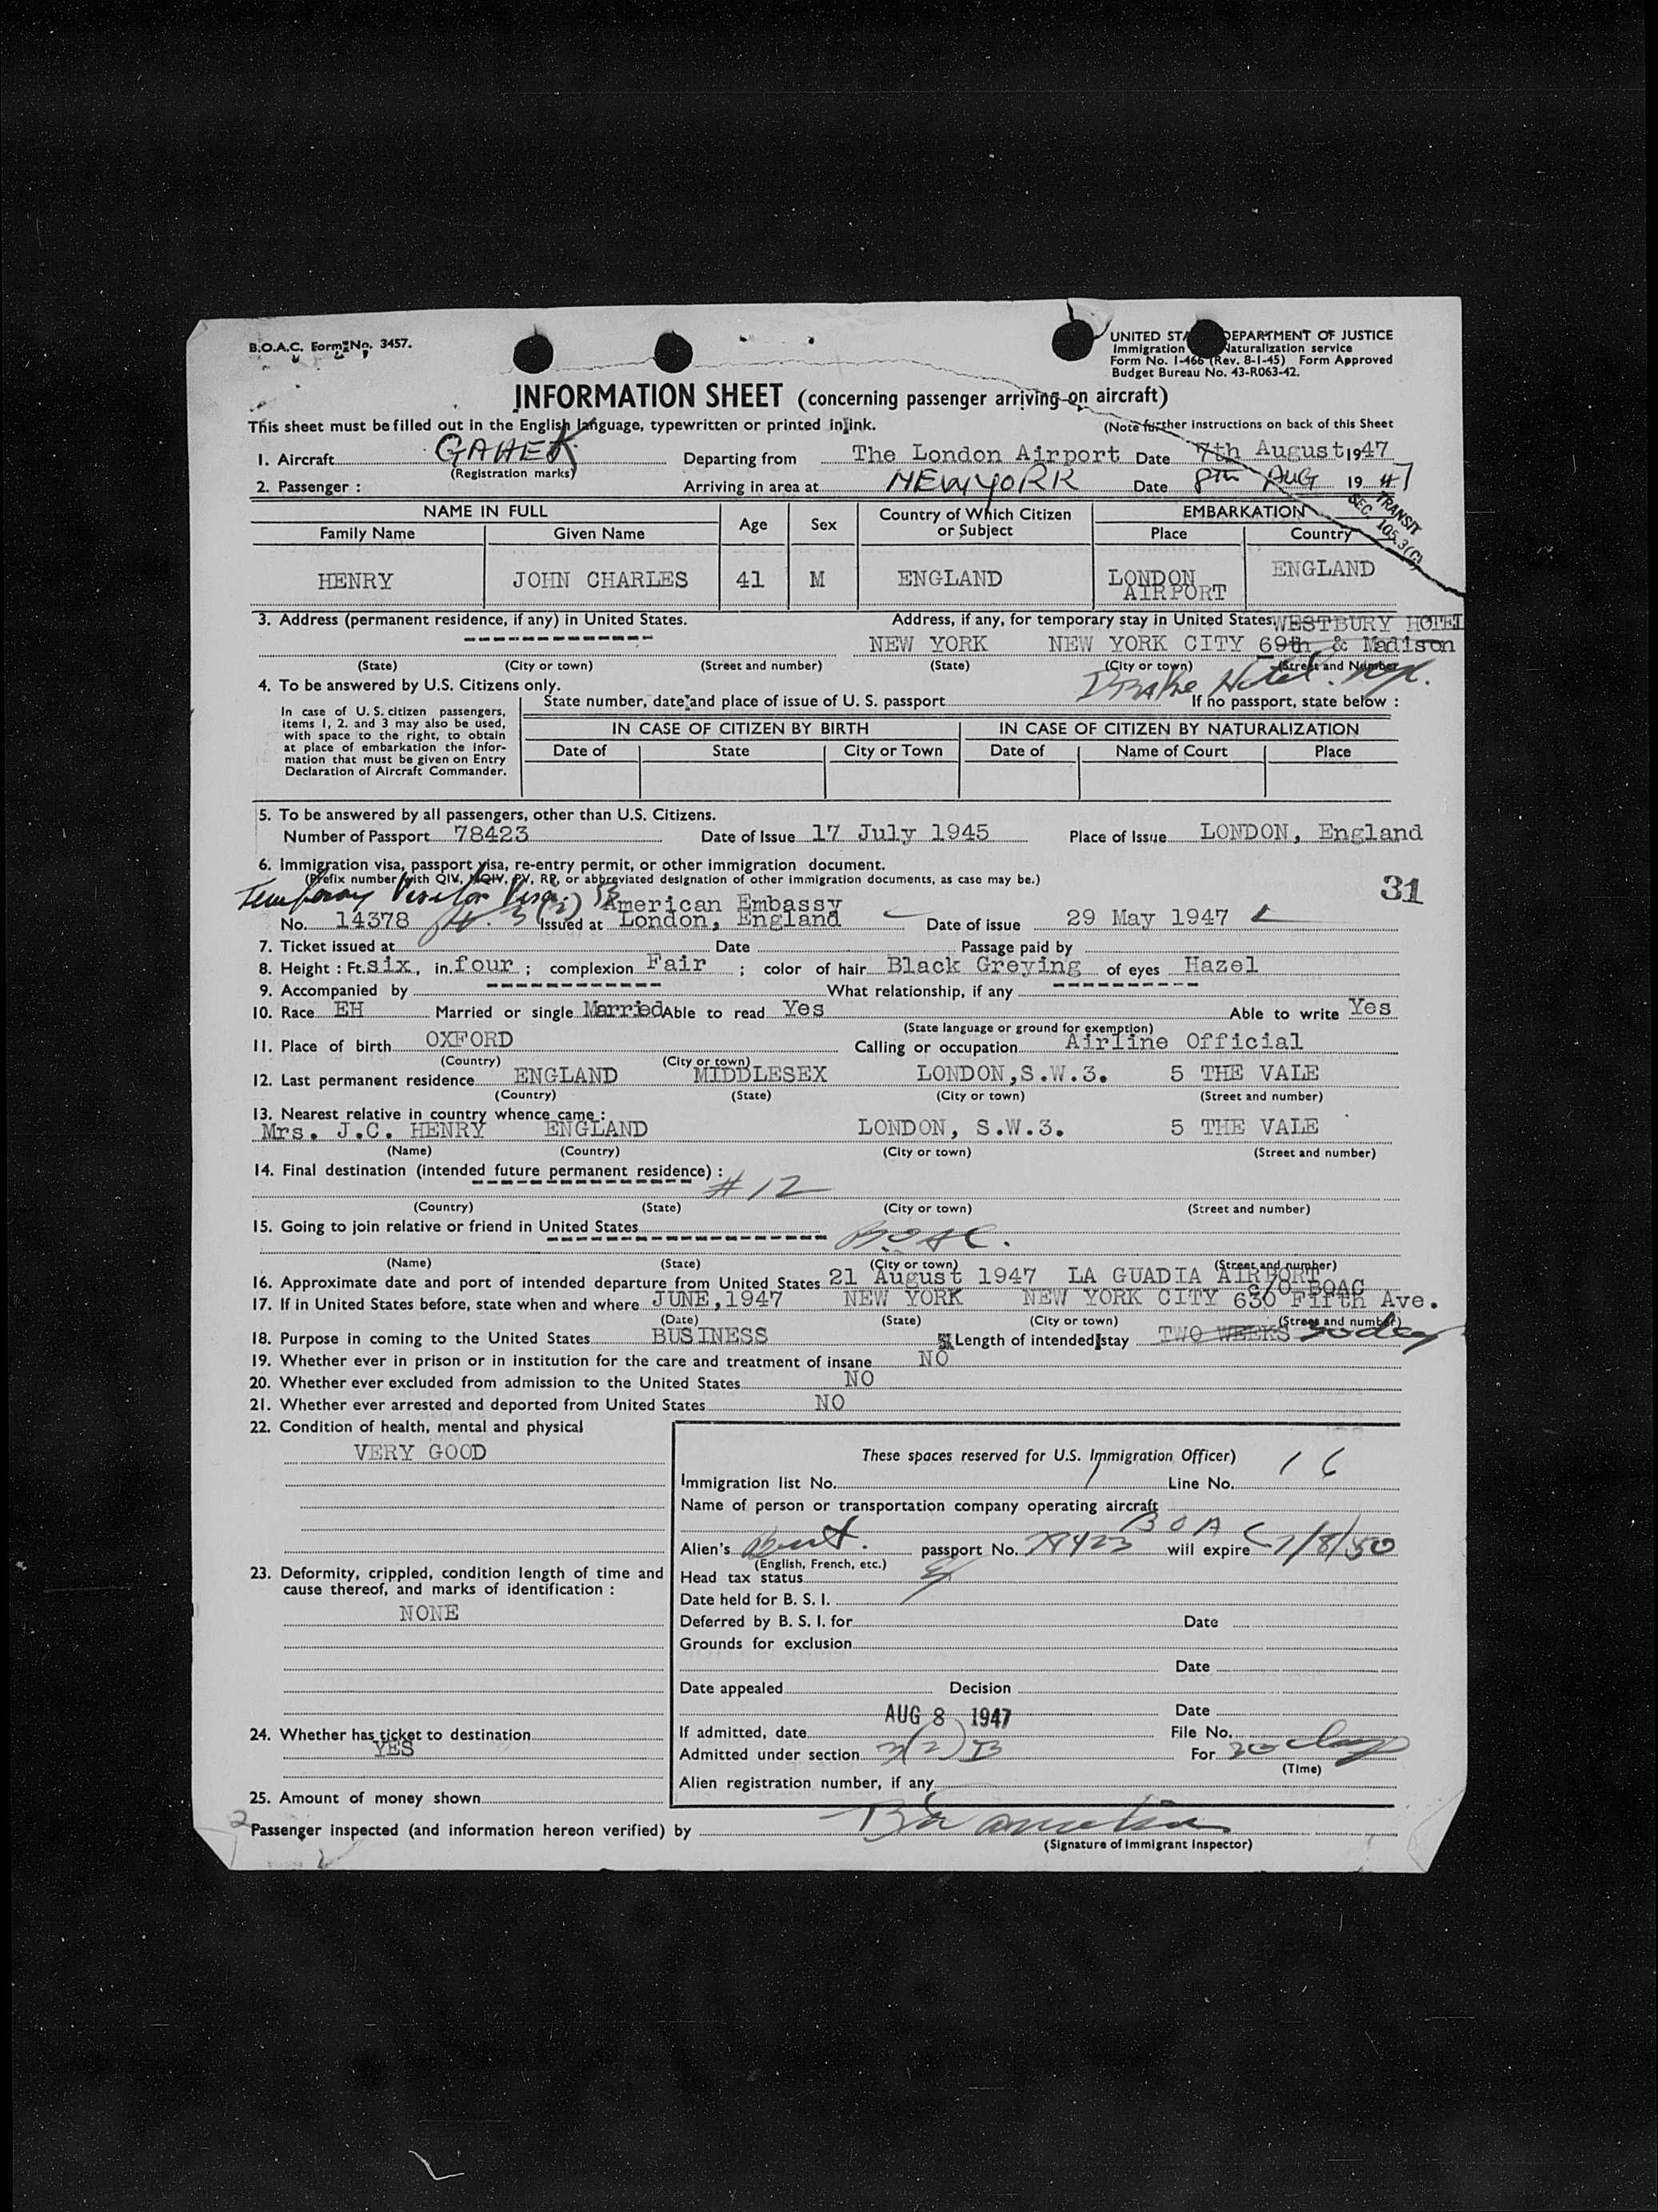 B.O.A.C. Form No. 3457.
UNITED STA DEPARTMENT OF JUSTICE
Immigration Naturalization service
Form No. I-466 (Rev. 8-1-45) Form Approved
Budget Bureau No. 43-R063-42.
INFORMATION SHEET (concerning passenger arriving on aircraft)
This sheet must be filled out in the English language, typewritten or printed in ink.
(Note further instructions on back of this Sheet
1. Aircraft GAHEK Departing from The London Airport Date 7th August 1947
(Registration marks)
2. Passenger : Arriving in area at NEW YORK Date 8th AUG 1947
TRANSIT
SEC. 105.3(C)
NAME IN FULL Age Sex Country of Which Citizen or Subject EMBARKATION
Family Name Given Name Place Country
HENRY JOHN CHARLES 41 M ENGLAND LONDON AIRPORT ENGLAND
3. Address (permanent residence, if any) in United States. Address, if any, for temporary stay in United States WESTBURY HOTEL
NEW YORK NEW YORK CITY 69th & Madison
(State) (City or town) (Street and number) (State) (City or town) (Street and Number)
Drake Hotel. nyc.
4. To be answered by U.S. Citizens only.
State number, date and place of issue of U. S. passport If no passport, state below :
In case of U. S. citizen passengers,
items 1, 2. and 3 may also be used,
with space to the right, to obtain
at place of embarkation the infor-
mation that must be given on Entry
Declaration of Aircraft Commander.
IN CASE OF CITIZEN BY BIRTH IN CASE OF CITIZEN BY NATURALIZATION
Date of State City or Town Date of Name of Court Place
5. To be answered by all passengers, other than U.S. Citizens.
Number of Passport 78423 Date of Issue 17 July 1945 Place of Issue LONDON, England
6. Immigration visa, passport visa, re-entry permit, or other immigration document.
(Prefix number with QIV, NQIV, PV, RP, or abbreviated designation of other immigration documents, as case may be.)
31
Temporary Visitor Visa. 3(2) American Embassy
No. 14378 Issued at London, England Date of issue 29 May 1947
7. Ticket issued at Date Passage paid by
8. Height : Ft. six, in. four ; complexion Fair ; color of hair Black Greying of eyes Hazel
9. Accompanied by What relationship, if any
10. Race EH Married or single Married Able to read Yes Able to write Yes
(State language or ground for exemption)
11. Place of birth OXFORD Calling or occupation Airline Official
(Country) (City or town)
12. Last permanent residence ENGLAND MIDDLESEX LONDON,S.W.3. 5 THE VALE
(Country) (State) (City or town) (Street and number)
13. Nearest relative in country whence came :
Mrs. J.C. HENRY ENGLAND LONDON, S.W.3. 5 THE VALE
(Name) (Country) (City or town) (Street and number)
14. Final destination (intended future permanent residence) :
# 12
(Country) (State) (City or town) (Street and number)
15. Going to join relative or friend in United States
BOAC.
(Name) (State) (City or town) (Street and number)
16. Approximate date and port of intended departure from United States 21 August 1947 LA GUADIA AIRPORT
c/O BOAC
17. If in United States before, state when and where JUNE,1947 NEW YORK NEW YORK CITY 630 Fifth Ave.
(Date) (State) (City or town) (Street and number)
18. Purpose in coming to the United States BUSINESS Length of intended stay TWO WEEKS 30 days
19. Whether ever in prison or in institution for the care and treatment of insane NO
20. Whether ever excluded from admission to the United States NO
21. Whether ever arrested and deported from United States NO
22. Condition of health, mental and physical
VERY GOOD
These spaces reserved for U.S. Immigration Officer)
Immigration list No. 1 Line No. 16
Name of person or transportation company operating aircraft
BOAC
Alien's passport No. 78423 will expire 7/8/50
(English, French, etc.)
Head tax status
Date held for B. S. I.
Deferred by B. S. I. for Date
Grounds for exclusion
Date
Date appealed Decision
Date
If admitted, date AUG 8 1947 File No.
Admitted under section 3(2) B For 30 days
(Time)
Alien registration number, if any
23. Deformity, crippled, condition length of time and
cause thereof, and marks of identification :
NONE
24. Whether has ticket to destination
YES
25. Amount of money shown
2
Passenger inspected (and information hereon verified) by
(Signature of Immigrant Inspector)